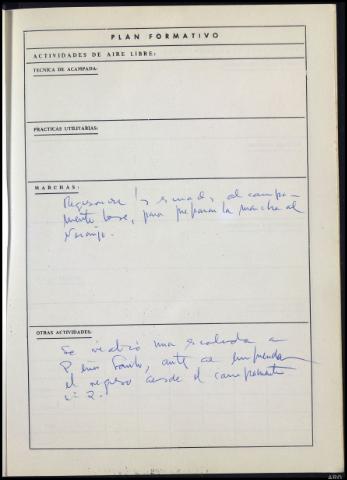 PLAN FORMATIVO
ACTIVIDADES DE AIRE LIBRE:
TECNICA DE ACAMPADA:
PRACTICAS UTILITARIAS:
MARCHAS:
al campa-
mento base, para preparar la marcha al
Naranjo.
OTRAS ACTIVIDADES:
Se realizó una escalada a
Peña Santa, antes de emprender
el regreso desde el campamento
nº 2.
ABC